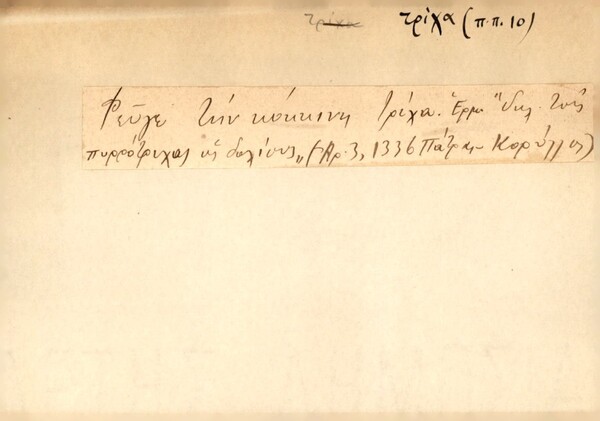 τρίχα τρίχα (π.π. 10)
Φεῦγε τὴν κόκκινη τρίχα. Ἑρμ. "δηλ. τοὺς
πυρρότριχας ὡς δολίους" (Ἀρ. 3, 1336 Πάτραι Κορύλλος)